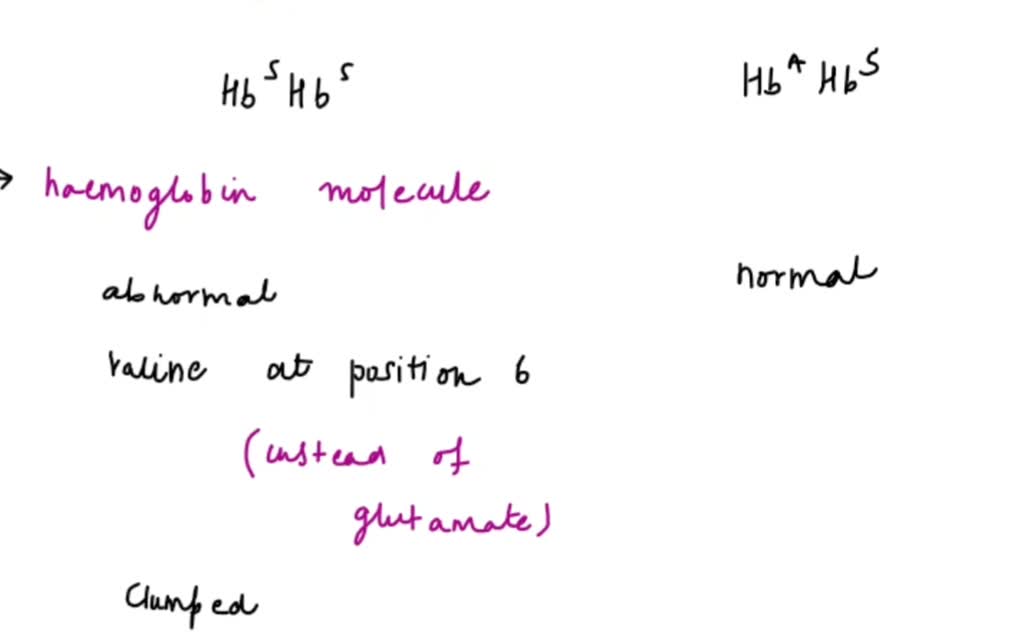 Hb^S Hb^S Hb^A Hb^S
→ haemoglobin molecule
abnormal normal
valine at position 6
(instead of
glutamate)
Clumped